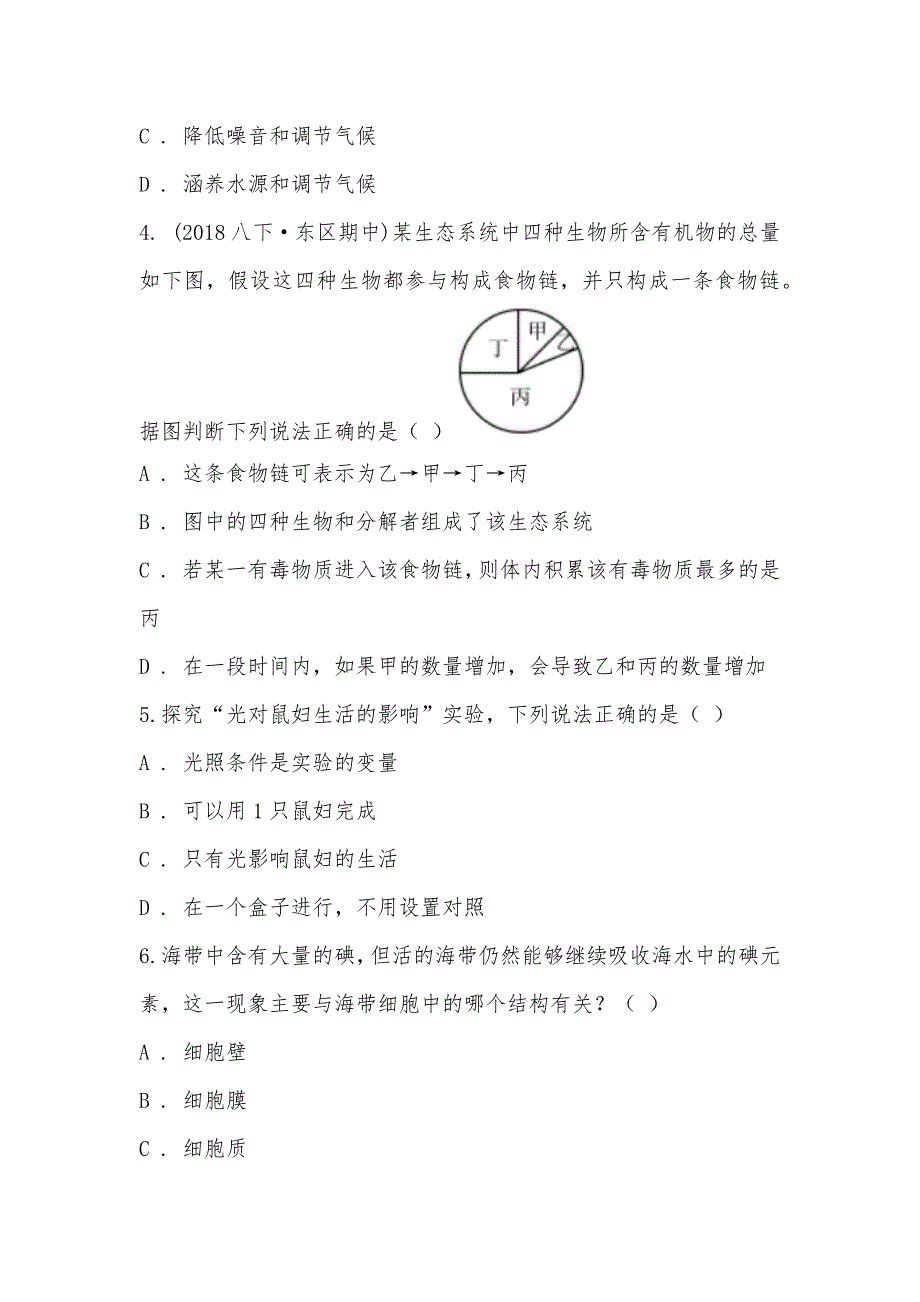 C . 降低噪音和调节气候
D . 涵养水源和调节气候
4. (2018八下·东区期中)某生态系统中四种生物所含有机物的总量
如下图，假设这四种生物都参与构成食物链，并只构成一条食物链。
甲
乙
丁
丙
据图判断下列说法正确的是（ ）
A . 这条食物链可表示为乙→甲→丁→丙
B . 图中的四种生物和分解者组成了该生态系统
C . 若某一有毒物质进入该食物链，则体内积累该有毒物质最多的是
丙
D . 在一段时间内，如果甲的数量增加，会导致乙和丙的数量增加
5.探究“光对鼠妇生活的影响”实验，下列说法正确的是（ ）
A . 光照条件是实验的变量
B . 可以用1只鼠妇完成
C . 只有光影响鼠妇的生活
D . 在一个盒子进行，不用设置对照
6.海带中含有大量的碘，但活的海带仍然能够继续吸收海水中的碘元
素，这一现象主要与海带细胞中的哪个结构有关？（ ）
A . 细胞壁
B . 细胞膜
C . 细胞质